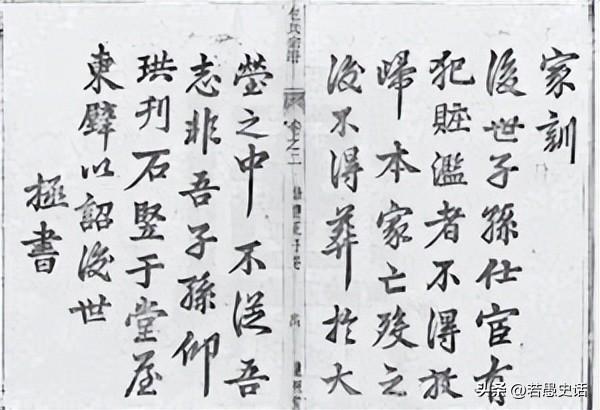 家訓
後世子孫仕宦有
犯賍濫者不得放
歸本家亡殁之
後不得葬於大
塋之中不從吾
志非吾子孫仰
珙刊石竪于堂屋
東壁以詔後世
拯書
包氏宗譜
卷之二
头条 @若愚史话